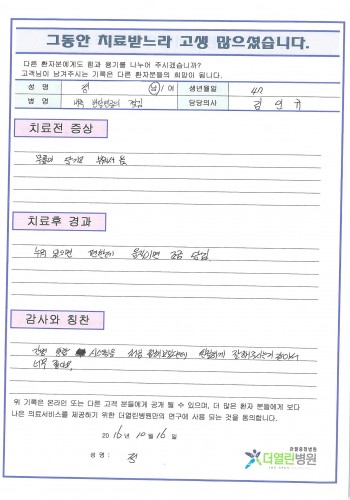 그동안 치료받느라 고생 많으셨습니다.
다른 환자분에게도 힘과 용기를 나누어 주시겠습니까?
고객님이 남겨주시는 기록은 다른 환자분들의 희망이 됩니다.
성 명 정 남 / 여 생년월일 47
병 명 내측 반월연골의 찢김 담당의사 김 인 규
치료전 증상
무릎이 당기고 부어서 옴
치료후 경과
누워 있으면 편한데 움직이면 조금 당김.
감사와 칭찬
간병 친절하게 잘해주시는거 같아서
너무 좋아요.
위 기록은 온라인 또는 다른 고객 분들에게 공개 될 수 있으며, 더 많은 환자 분들에게 보다
나은 의료서비스를 제공하기 위한 더열린병원만의 연구에 사용 되는 것을 동의합니다.
20 16 년 10 월 16 일
성 명 : 정
관절중점병원
더열린병원